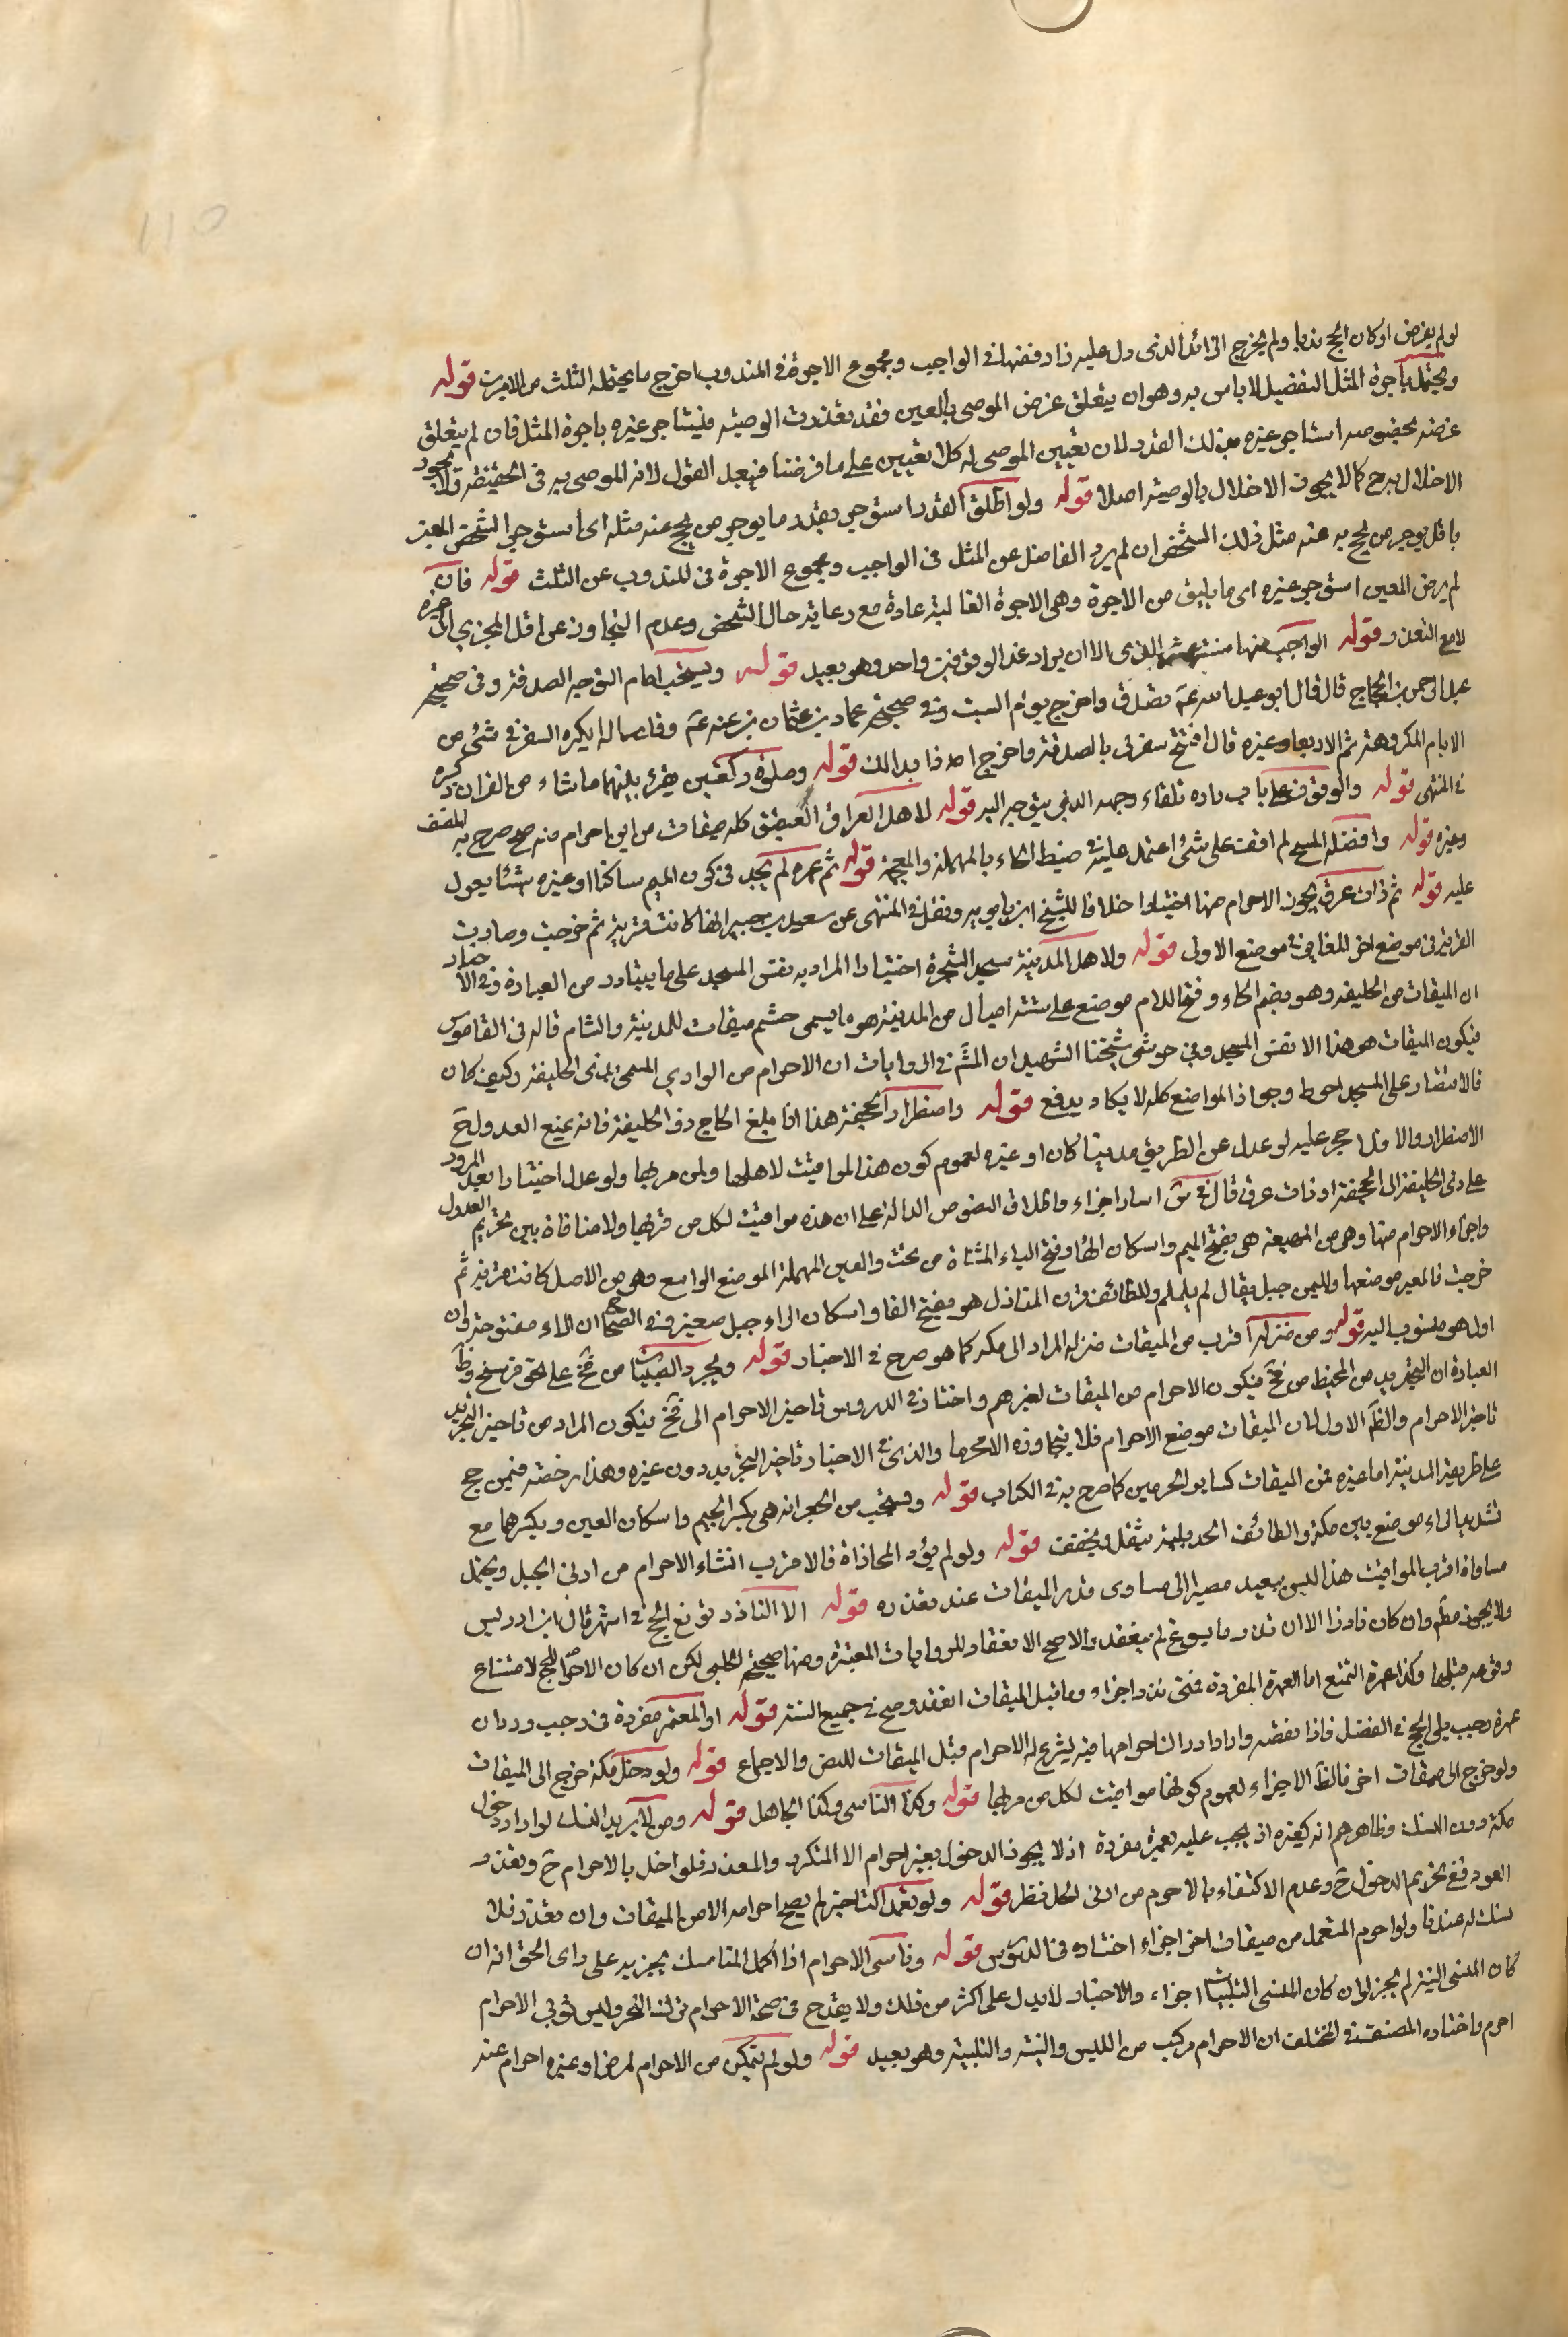 لو لم يفرض او كان الحج ندبا ولم يخرج الزائد الذى دل عليه زاد فضها فى الواجب ومجموع الاجرة فى المندوب اخرج ما يحتمله الثلث من الامرين قوله
ويحتمل باجرة المثل التفصيل لا باس به وهو ان يتعلق غرض الموصى بالعين فقد تعذرت الوصيته فيستاجر غيره باجرة المثل فان لم يتعلق
غرضه بخصوصه استاجر غيره بذلك القدر لان تعيين الموصى له كلا تعيين على ما فرضنا فيبطل القول لانه الموصى به فى الحقيقة ولا يجوز
الاخلال به ح كما لا يجوز الاخلال بالوصيه اصلا قوله ولو اطلق القدر استوجر بقدر ما يوجر من يحج عنه مثله اى استوجر الشخص المعين
باقل يوجر من يحج به عنه مثل ذلك الشخص ان لم يرد الفاضل عن المثل فى الواجب ومجموع الاجرة فى المندوب عن الثلث قوله فان
لم يرض المعين استوجر غيره اى ما يليق من الاجرة وهى الاجرة الغالبة عادة مع رعاية حال الشخص وعدم التجاوز عن اقل المجزى الى غيره
لا مع التعذر قوله الواجب منها الذى الا ان يراد عند الوقوفين واحد وهو بعيد قوله ويستحب امام التوجه الصدقة وفى صحيحة
عبد الرحمن بن الحجاج قال قال ابو عبد الله عم تصدق واخرج يوم السبت وفى صحيحة حماد بن عثمان عنه عم وقد ساله ايكره السفر فى شئ من
الايام المكروهة مثل الاربعا وغيره قال افتتح سفرك بالصدقة واخرج اذا بدا لك قوله وصلوة ركعتين يقرء بينهما ما شاء من القران ذكره
فى المنتهى قوله والوقوف على باب داره تلقاء وجهه الذى يتوجه اليه قوله لاهل العراق العقيق كله ميقات من اين احرم منه صح صرح به المصنف
وغيره قوله وافضله المسلح لم اقف على شئ اعتمد عليه فى ضبط الحاء بالمهملة والمعجمة قوله ثم غمرة لم نجد فى كون الميم ساكنا او غيره شئا يعول
عليه قوله ثم ذات عرق يجوز الاحرام منها اختيارا خلافا للشيخ ابن بابويه ونقل فى المنتهى عن سعيد بن جبير انها كانت قرية ثم خربت وصارت
القرية فى موضع اخر للمغاير فى موضع الاول قوله ولاهل المدينة مسجد الشجرة اختيارا المراد به نفس المسجد على ما يتبادر من العبارة وفى الاخبار
ان الميقات من الحليفة وهو بضم الحاء وفتح اللام موضع على ستة اميال من المدينة هو ما يسمى حشم ميقات للمدينة والشام قاله فى القاموس
فيكون الميقات هو هذا لا نفس المسجد وفى حوشى شيخنا الشهيد ان المش فى الروايات ان الاحرام من الوادى المسمى بذى الحليفة وكيف كان
فالاقتصار على المسجد احوط وجواز المواضع كله لا يكاد يدفع قوله واضطرارا الجحفة هذا اذا بلغ الحاج ذو الحليفة فانه يمنع العدول ح
الاضطرار والا فلا حجر عليه لو عدل عن الطريق مدينا كان او غيره لعموم كون هذه المواقيت لاهلها ولمن مر بها ولو عدل اختيارا بعد المرور
على ذى الحليفة الى الجحفة او ذات عرق قال فى س اساء واجزاء واطلاق النصوص الدالة على ان هذه مواقيت لكل من مر بها ولا منافاة بين تحريم العدول
واجزاء الاحرام منها وهى من المهيعة هى بفتح الميم واسكان الهاء وفتح الياء المثناة من تحت والعين المهملة الموضع الواسع وهى من الاصل كانت قرية ثم
خربت فالمعبر موضعها ولليمن جبل يقال له يلملم وللطائف قرن المنازل هو بفتح القاف واسكان الراء جبل صغير وفى الصحاح ان الراء مفتوحة وان
اولا هو منسوب اليه قوله ومن منزله اقرب من الميقات منزله المراد الى مكة كما هو صرح فى الاخبار قوله ويجرد الصبيان من فخ على نحو فرسخ وظ
العبارة ان التجريد من المخيط من فخ فيكون الاحرام من الميقات لغيرهم واختار فى الدروس تاخير الاحرام الى فخ فيكون المراد من تاخير التجريد
تاخير الاحرام والظ الاول لان الميقات موضع الاحرام فلا يتجاوزه الا محرما والذى فى الاخبار تاخير التجريد دون غيره وهذا رخصة فيمن حج
على طريق المدينة اما غيره فمن الميقات كساير المحرمين كما صرح به فى الكتاب قوله ويستحب من الجعرانه هى بكسر الجيم واسكان العين وبكسرهما مع
تشديد الراء موضع بين مكة والطائف الحديبية بثقل ويخفف قوله ولو لم يؤد المحاذاة فالاقرب انشاء الاحرام من ادنى الحل ويحتمل
مساواة اقرب المواقيت هذا ليس ببعيد مصيرا الى مساوى قدر الميقات عند تعذره قوله الا الناذر يوقع الحج فى اشهره قال ابن ادريس
ولا يجوز مطلقا وان كان ناذرا الا ان نذر ما يسوغ لم ينعقد والاصح الانعقاد للروايات المعتبرة ومنها صحيحة الحلبى لكن ان كان الاحرام للحج لامتناع
وقوعه قبلها وكذا عمرة التمتع اما العمرة المفردة فمتى نذر اجزاء وما قبل الميقات انعقد وصح فى جميع السنه قوله او المعتمر مفردة فى رجب وردان
عمرة رجب يلى الحج فى الفضل فاذا قصده وارادا درك احرامها فيه يشرع له الاحرام قبل الميقات للنص والاجماع قوله ولو دخل مكة خرج الى الميقات
ولو خرج الى ميقات اخر فالظ الاجزاء لعموم كونها مواقيت لكل من مر بها قوله وكذا الناسى وكذا الجاهل قوله ومن لا يريد النسك لو اراد دخول
مكة دون النسك وظاهرهم انه كغيره اذ يجب عليه عمرة مفردة اذ لا يجوز الدخول بغير احرام الا المتكرر والمعذر فلو اخل بالاحرام ح وتعذر
العود ففى تحريم الدخول ح وعدم الاكتفاء بالاحرم من ادنى الحل نظر قوله ولو تعمد التاخير لم يصح احرامه الا من الميقات وان تعذر ذلك
لنسكه عندنا ولو احرم المتعمد من ميقات اخر اجزاء اختاره فى الدروس قوله وناسى الاحرام اذا اكمل المناسك يجزيه على راى الحق انه ان
كان المنسى النية لم يجز له وان كان المنسى التلبيات اجزاء والاخبار لا يدل على اكثر من ذلك ولا يقدح فى صحة الاحرام ترك التجرد ولبس ثوبى الاحرام
احرم واختاره المصنف فى المختلف ان الاحرام مركب من اللبس والنية والتلبية وهو بعيد قوله ولو لم يتمكن من الاحرام لمرض او غيره احرام عند